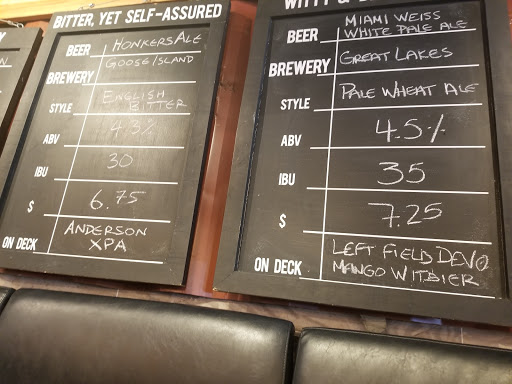 BITTER, YET SELF-ASSURED
BEER HONKERS ALE
BREWERY GOOSE ISLAND
STYLE ENGLISH
BITTER
ABV 4.3%
IBU 30
$ 6.75
ON DECK ANDERSON
XPA
BEER MIAMI WEISS
WHITE PALE ALE
BREWERY GREAT LAKES
STYLE PALE WHEAT ALE
ABV 4.5%
IBU 35
$ 7.25
ON DECK LEFT FIELD DEVO
MANGO WITBIER